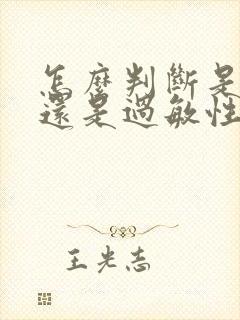 怎麼判斷是
還是過敏性
王光志